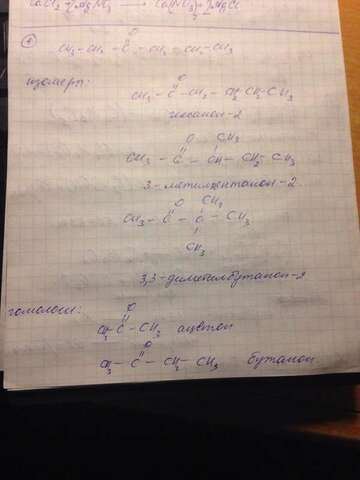 CaCl2 + 2AgNO3 → Ca(NO3)2 + 2AgCl
①
O
CH3-CH2-C-CH2-CH2-CH3
изомеры:
O
CH3-C-CH2-CH2-CH2-CH3
гексанон-2
O CH3
CH3-C-CH-CH2-CH3
3-метилпентанон-2
O CH3
CH3-C-C-CH3
CH3
3,3-диметилбутанон-2
гомологи:
O
CH3-C-CH3 ацетон
O
CH3-C-CH2-CH3 бутанон